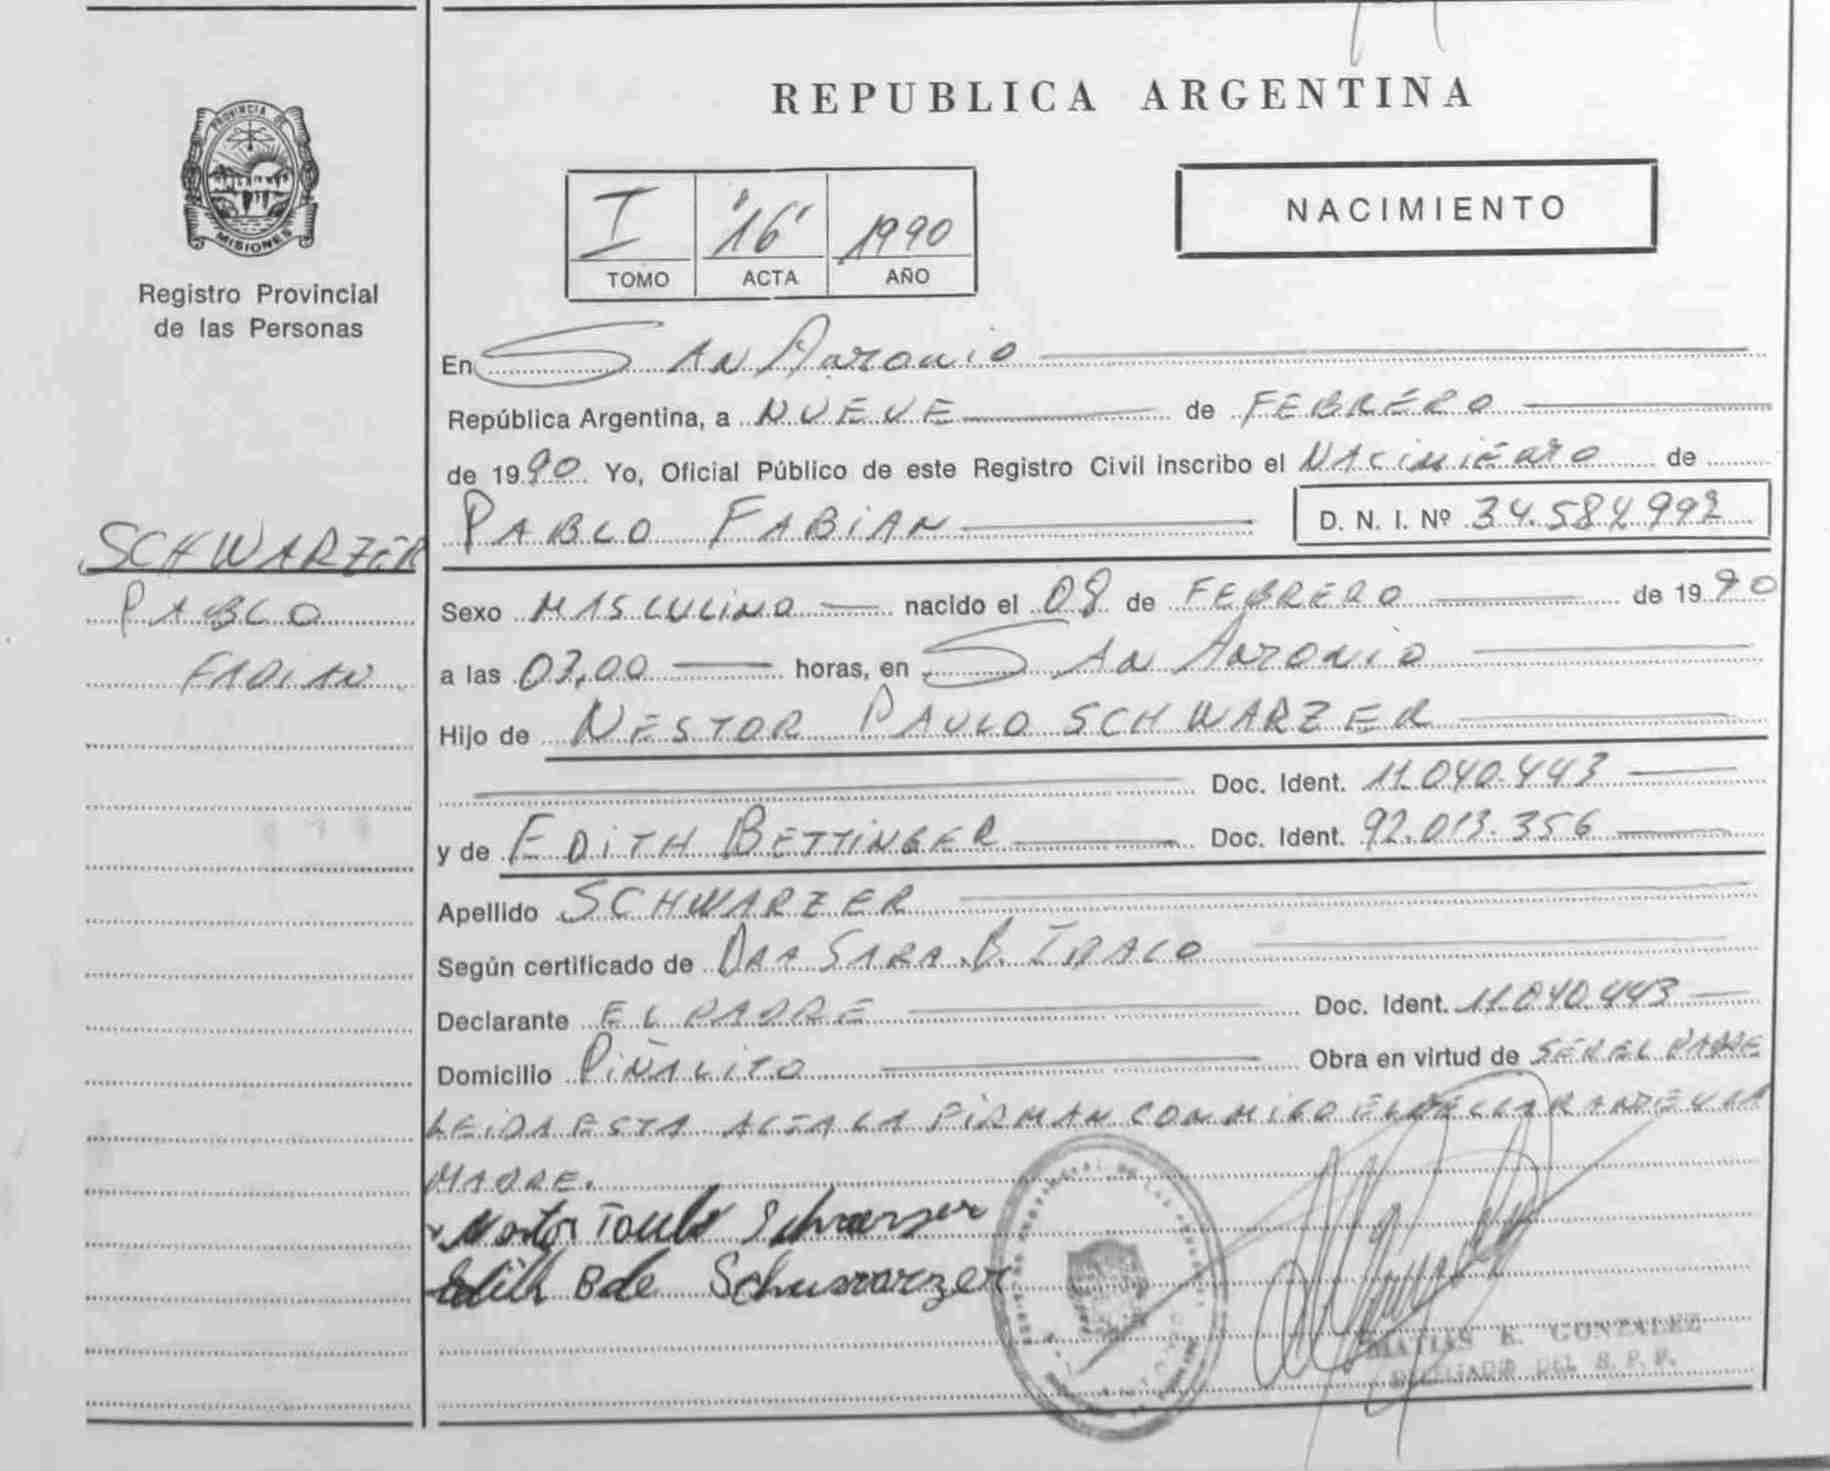 REPUBLICA ARGENTINA
PROVINCIA DE
MISIONES
Registro Provincial
de las Personas
I
TOMO
"16"
ACTA
1990
AÑO
NACIMIENTO
En San Antonio
República Argentina, a NUEVE de FEBRERO
de 1990 Yo, Oficial Público de este Registro Civil inscribo el NACIMIENTO de
PABLO FABIAN D. N. I. Nº 34.584.992
SCHWARZER
PABLO
FABIAN
Sexo MASCULINO nacido el 08 de FEBRERO de 1990
a las 03,00 horas, en San Antonio
Hijo de NESTOR PAULO SCHWARZER
Doc. Ident. 11.040.443
y de EDITH BETTINGER Doc. Ident. 92.013.356
Apellido SCHWARZER
Según certificado de DRA SARA B.
Declarante EL PADRE Doc. Ident. 11.040.443
Domicilio PIÑALITO Obra en virtud de SER EL PADRE
LEIDA ESTA ACTA LA FIRMAN CONMIGO EL DECLARANTE Y LA
MADRE.
Nestor Paulo Schwarzer
Edith B de Schwarzer
MATIAS E. GONZALEZ
DEL R. P. P.